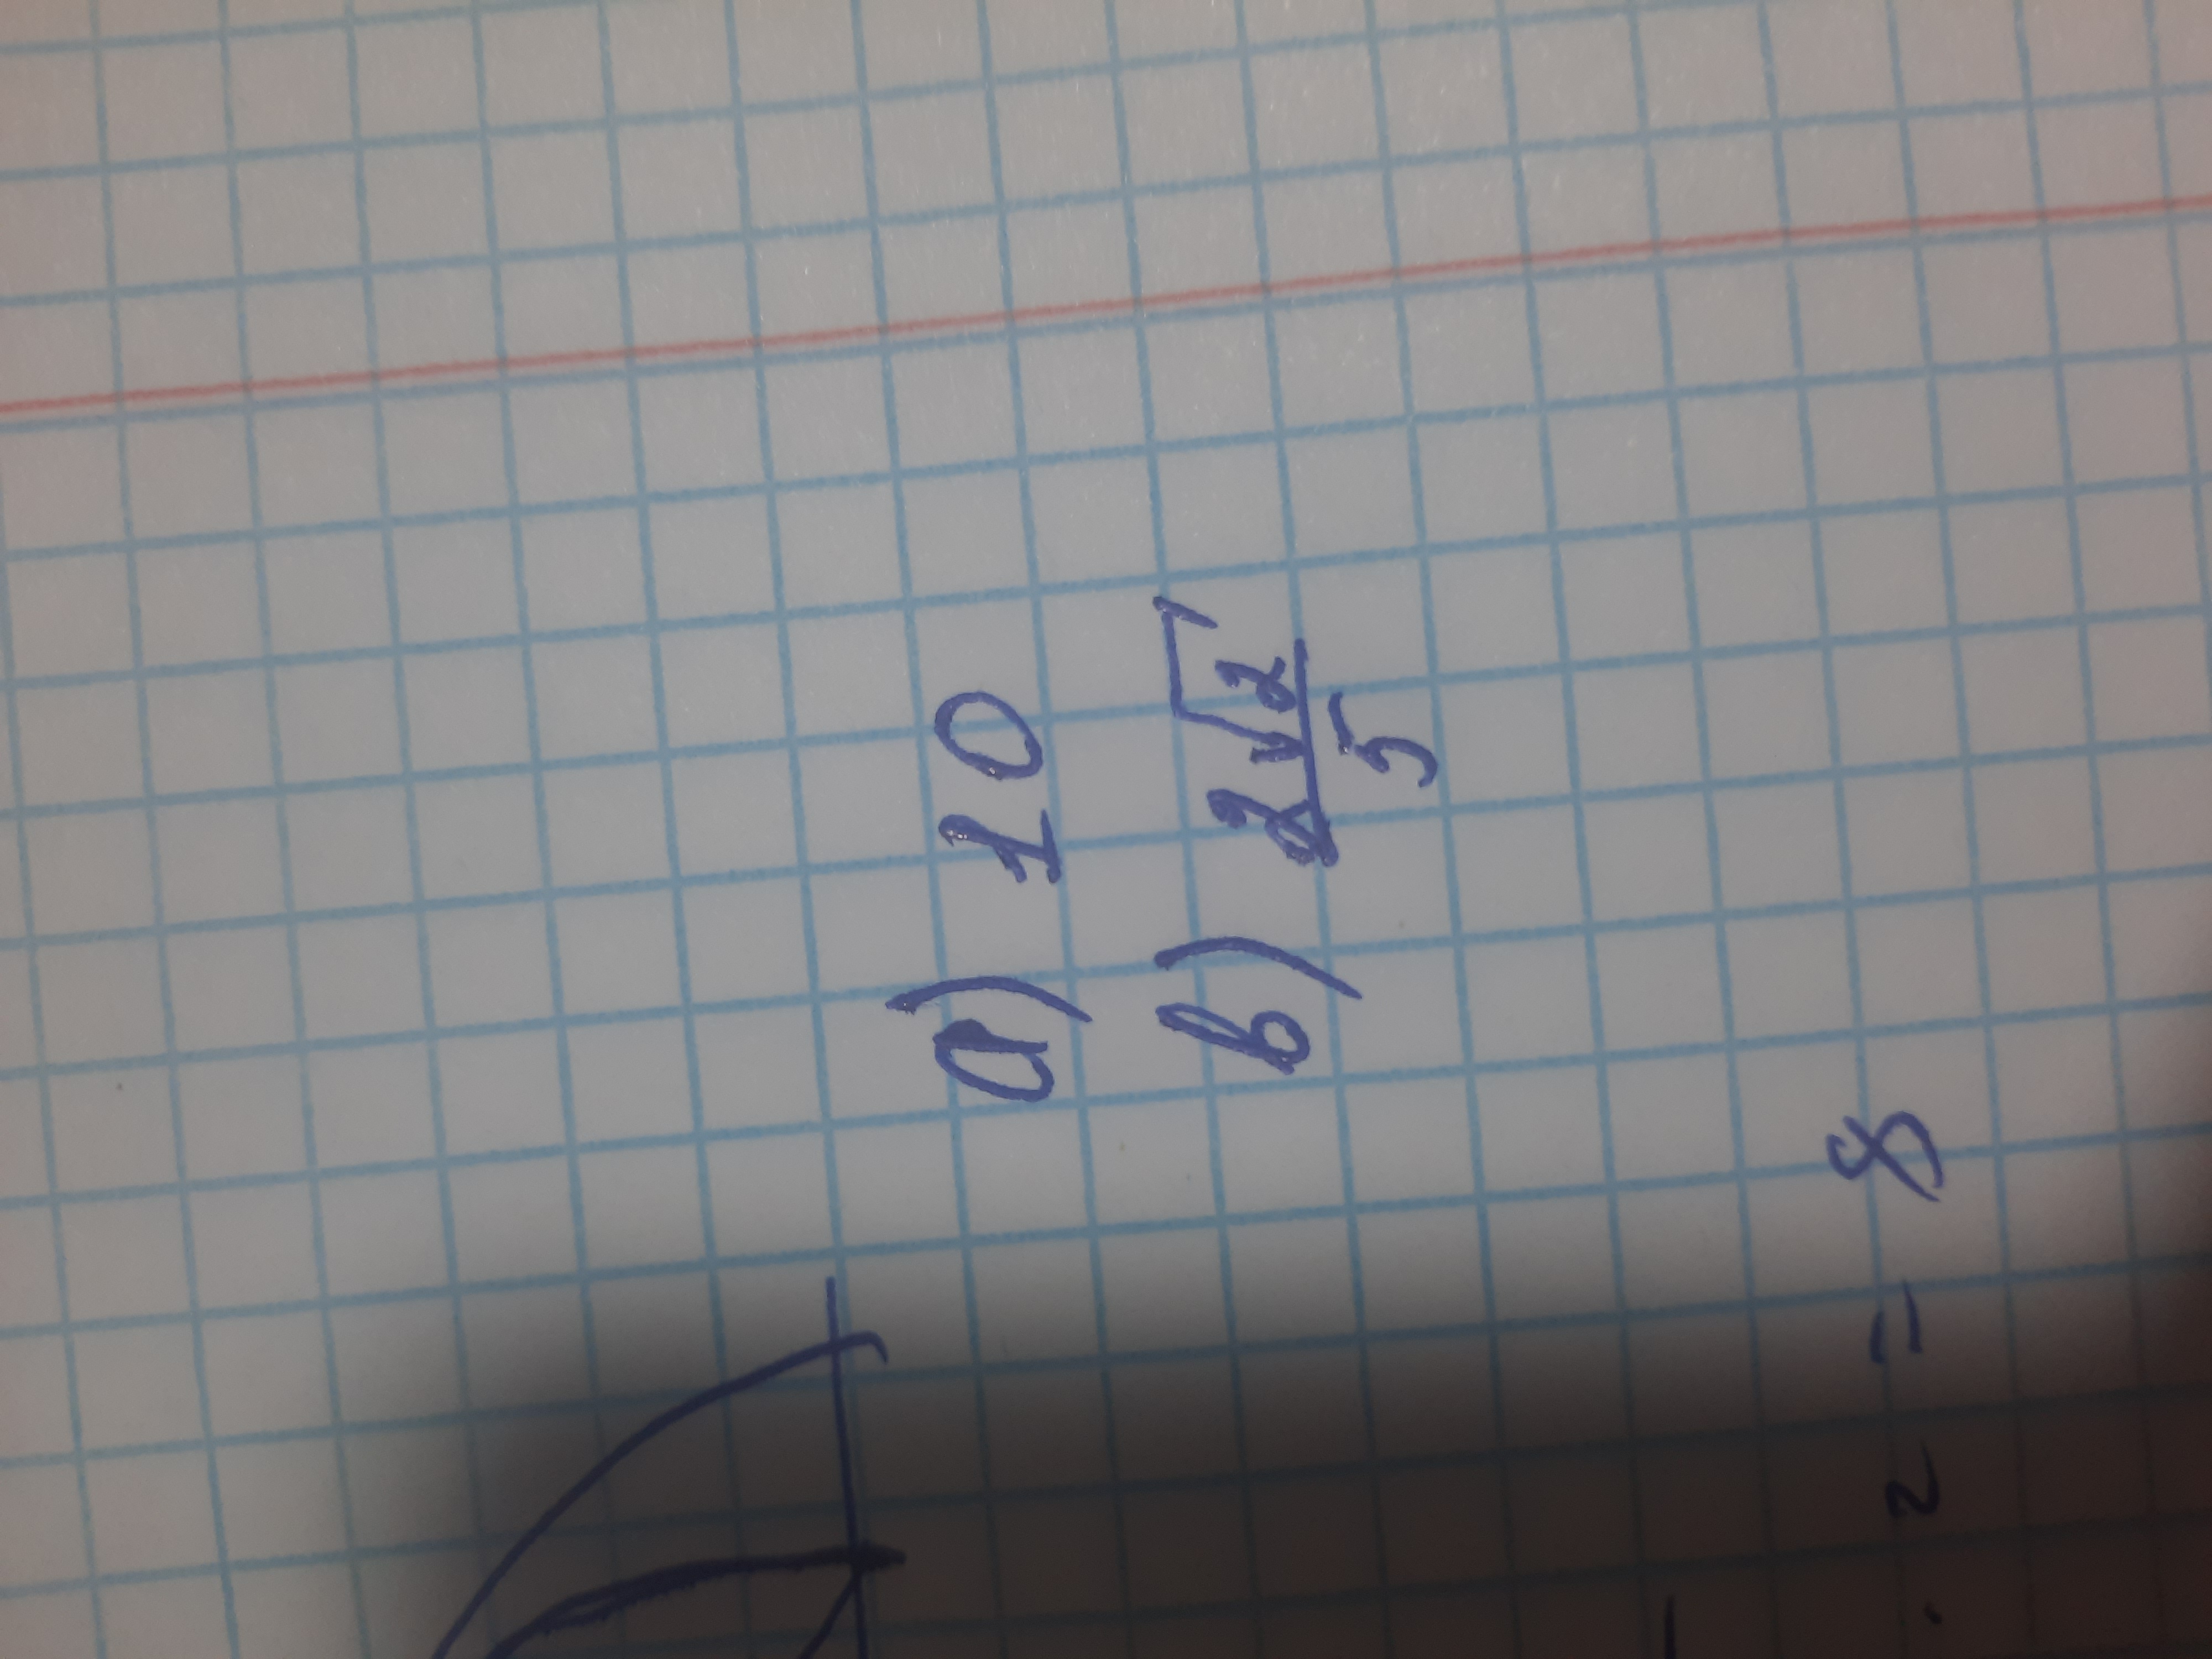 a) 10
b) 2√2/5
. 2 = 8